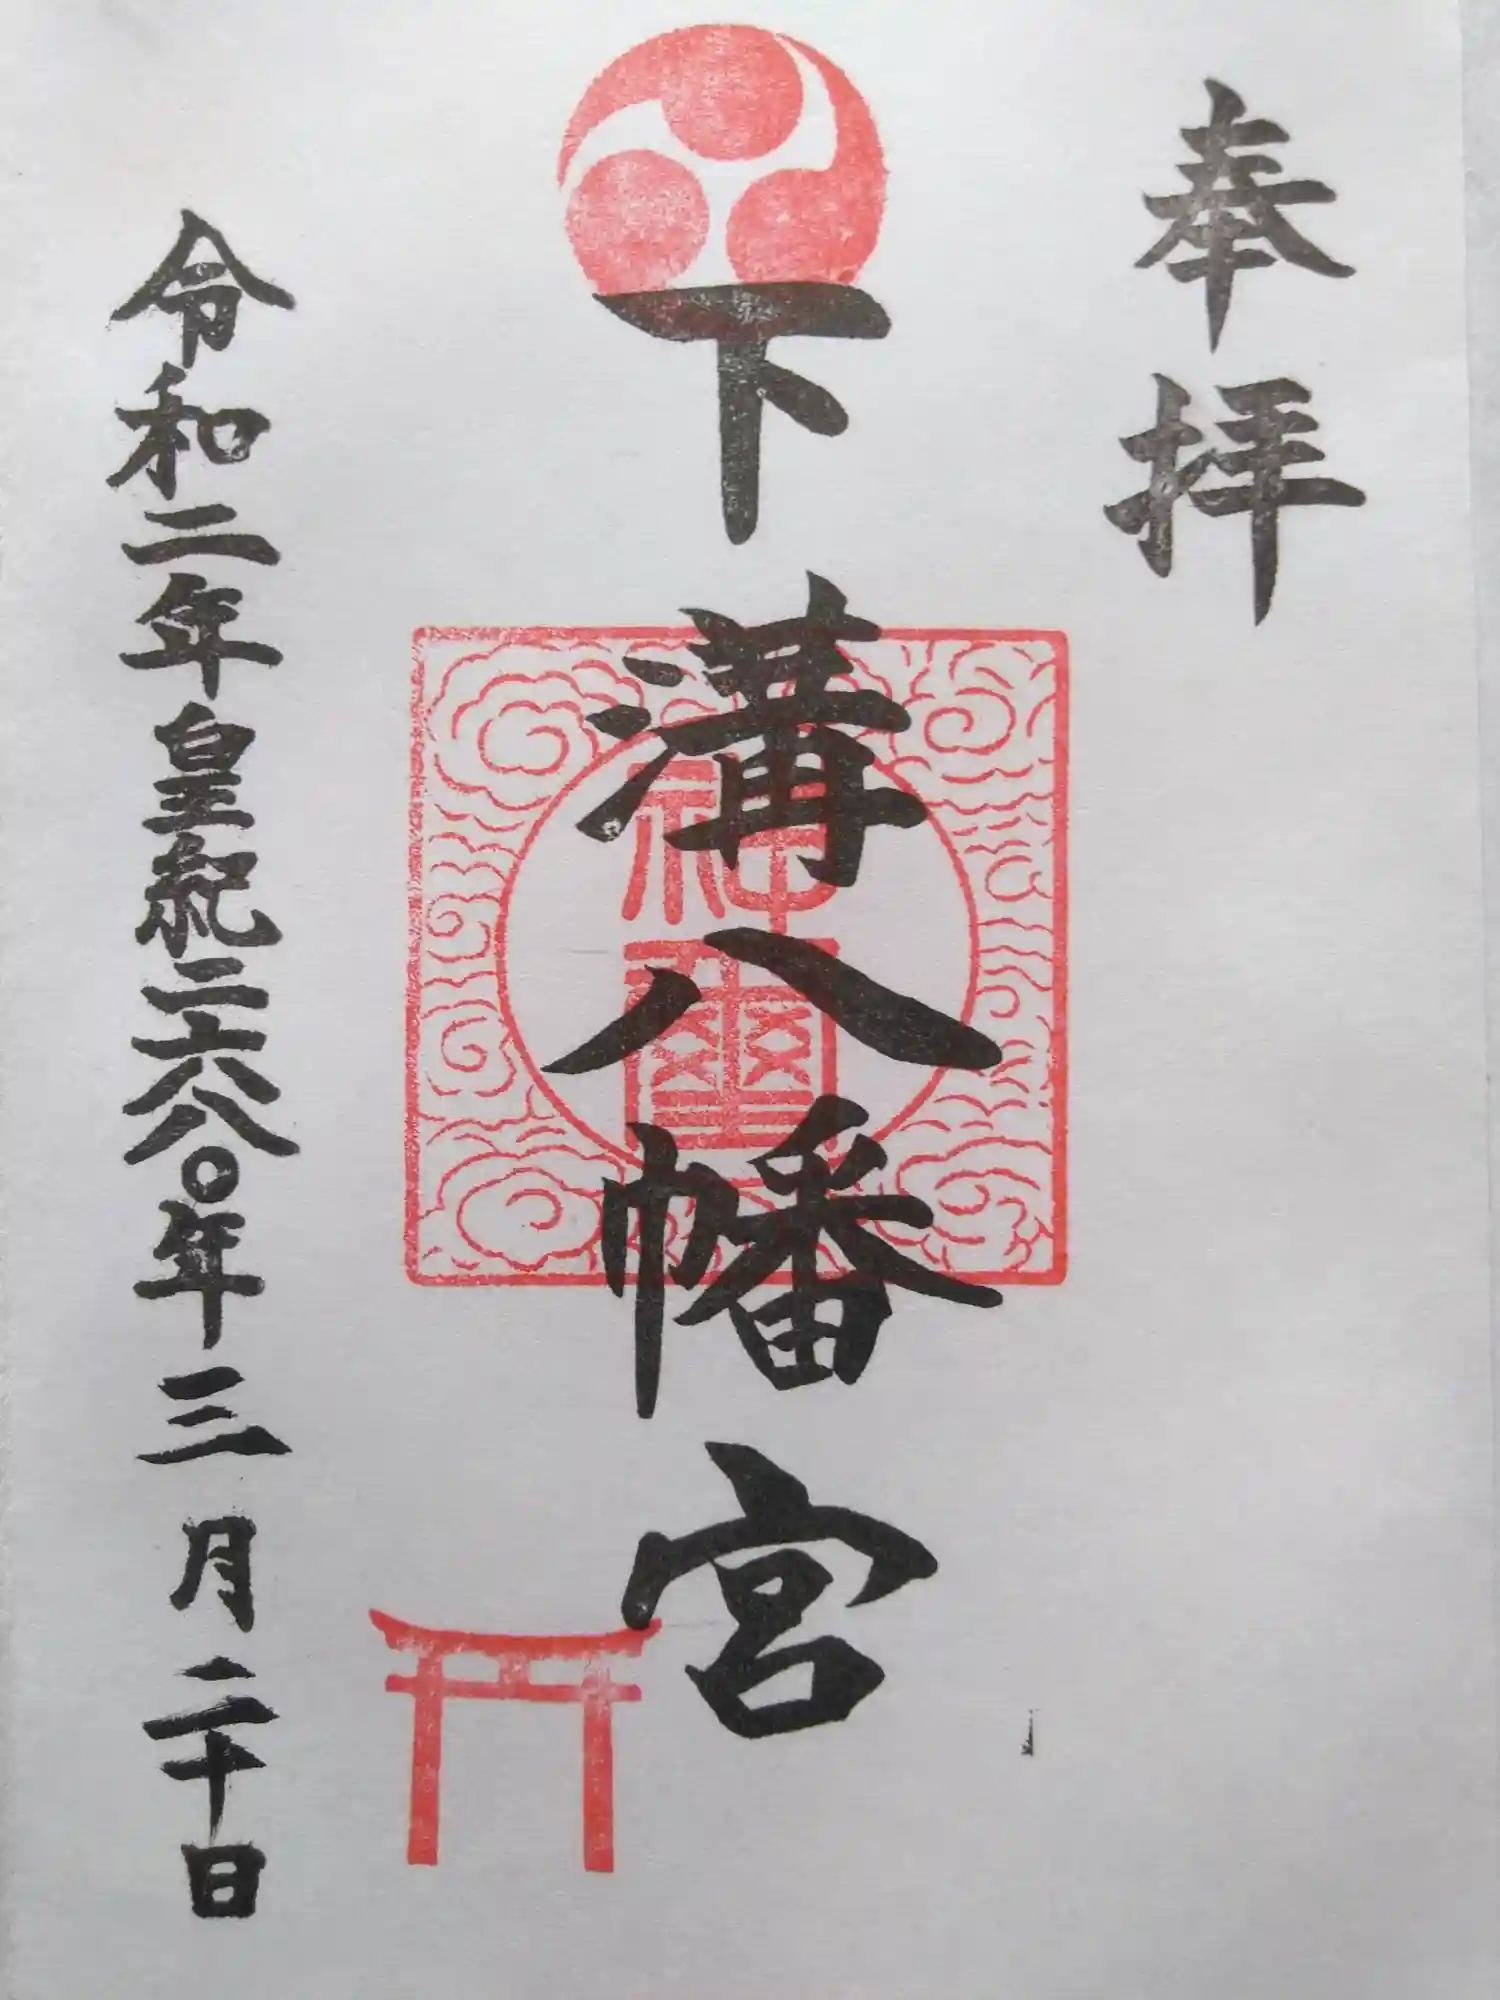 奉拝
下溝八幡宮
神璽
令和二年皇紀二六八〇年三月二十日